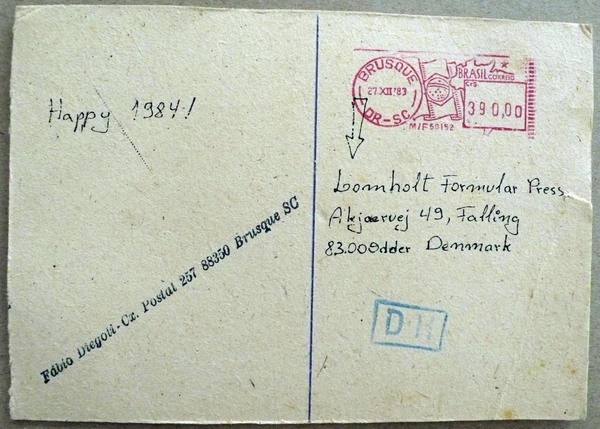 Happy 1984!
Fábio Diegoli-Cx. Postal 257 88350 Brusque SC
BRUSQUE
27.XII'83
DR-SC
BRASIL CORREIO
Cr$
390,00
M/F50152
Lomholt Formular Press
Akjærvej 49, Falling
83.00 Odder Denmark
DH